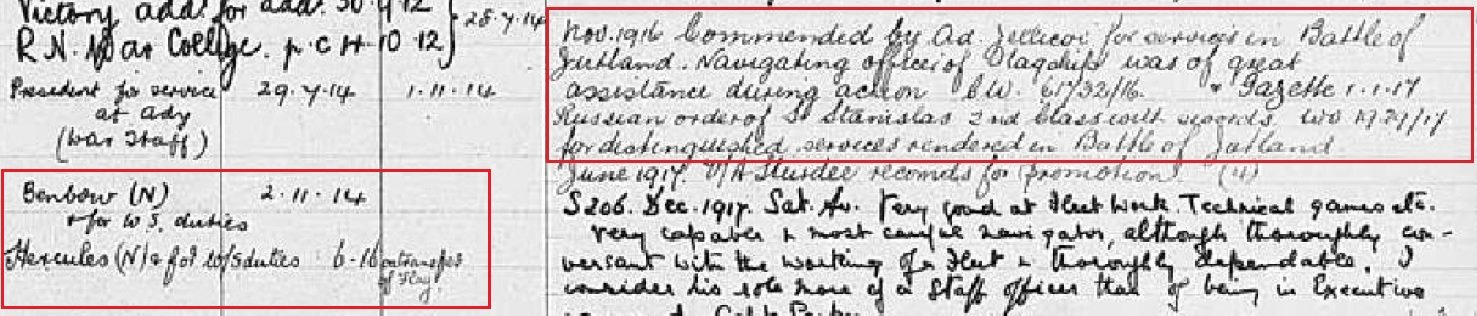 Victory addl for addl 30.9.12
R.N. War College. p.c 10 12 } 28.7.14
President for service 29.7.14 1.11.14
at Ady
(War Staff)
Benbow (N) 2.11.14
+ for W S. duties
Hercules (N) & for W/S duties 6-16 on transfer
of Flag.
Nov. 1916 Commended by Ad. Jellicoe for services in Battle of
Jutland. Navigating officer of Flagship was of great
assistance during action C.W. 61732/16. Gazette 1.1.17
Russian order of St Stanislas 2nd Class with swords.
for distinguished services rendered in Battle of Jutland.
June 1917. V/A Sturdee recomds for promotion (4)
S206. Dec. 1917. Sat. Av. Very good at Fleet Work. Technical games etc.
Very capable & most careful navigator, although thoroughly con-
versant with the working of a Fleet & thoroughly dependable. I
consider his role more of a Staff officer than of being in Executive